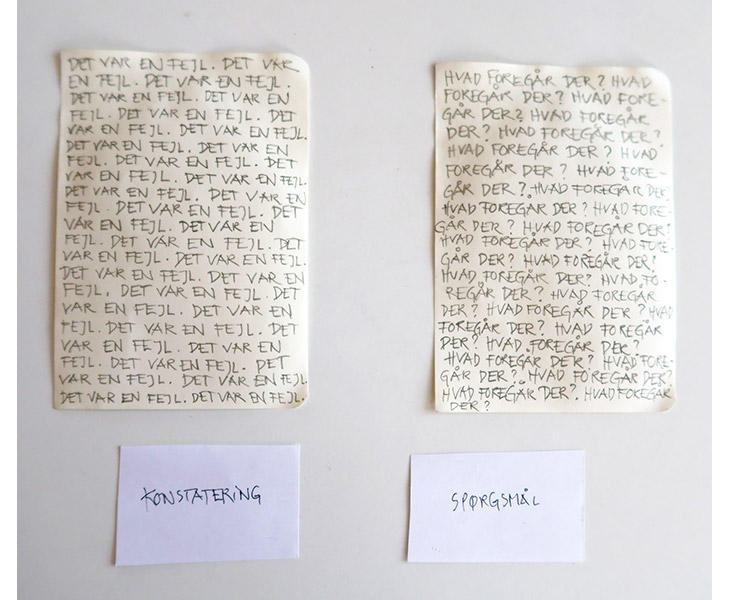 DET VAR EN FEJL. DET VAR
EN FEJL. DET VAR EN FEJL.
DET VAR EN FEJL. DET VAR EN
FEJL. DET VAR EN FEJL. DET
VAR EN FEJL. DET VAR EN FEJL.
DET VAR EN FEJL. DET VAR EN
FEJL. DET VAR EN FEJL. DET
VAR EN FEJL. DET VAR EN FEJL.
DET VAR EN FEJL. DET VAR EN
FEJL. DET VAR EN FEJL. DET
VAR EN FEJL. DET VAR EN
FEJL. DET VAR EN FEJL. DET
VAR EN FEJL. DET VAR EN FEJL.
DET VAR EN FEJL. DET VAR EN
FEJL. DET VAR EN FEJL. DET
VAR EN FEJL. DET VAR EN
FEJL. DET VAR EN FEJL. DET
VAR EN FEJL. DET VAR EN
FEJL. DET VAR EN FEJL. DET
VAR EN FEJL. DET VAR EN FEJL
DET VAR EN FEJL. DET VAR EN FEJL.
KONSTATERING
HVAD FOREGÅR DER? HVAD
FOREGÅR DER? HVAD FORE-
GÅR DER? HVAD FOREGÅR
DER? HVAD FOREGÅR DER?
HVAD FOREGÅR DER? HVAD
FOREGÅR DER? HVAD FORE-
GÅR DER? HVAD FOREGÅR DER?
HVAD FOREGÅR DER? HVAD FORE-
GÅR DER? HVAD FOREGÅR DER?
HVAD FOREGÅR DER? HVAD FORE-
GÅR DER? HVAD FOREGÅR DER?
HVAD FOREGÅR DER? HVAD FO-
REGÅR DER? HVAD FOREGÅR
DER? HVAD FOREGÅR DER? HVAD
FOREGÅR DER? HVAD FOREGÅR
DER? HVAD FOREGÅR DER?
HVAD FOREGÅR DER? HVAD FORE-
GÅR DER? HVAD FOREGÅR DER?
HVAD FOREGÅR DER? HVAD FOREGÅR
DER?
SPØRGSMÅL